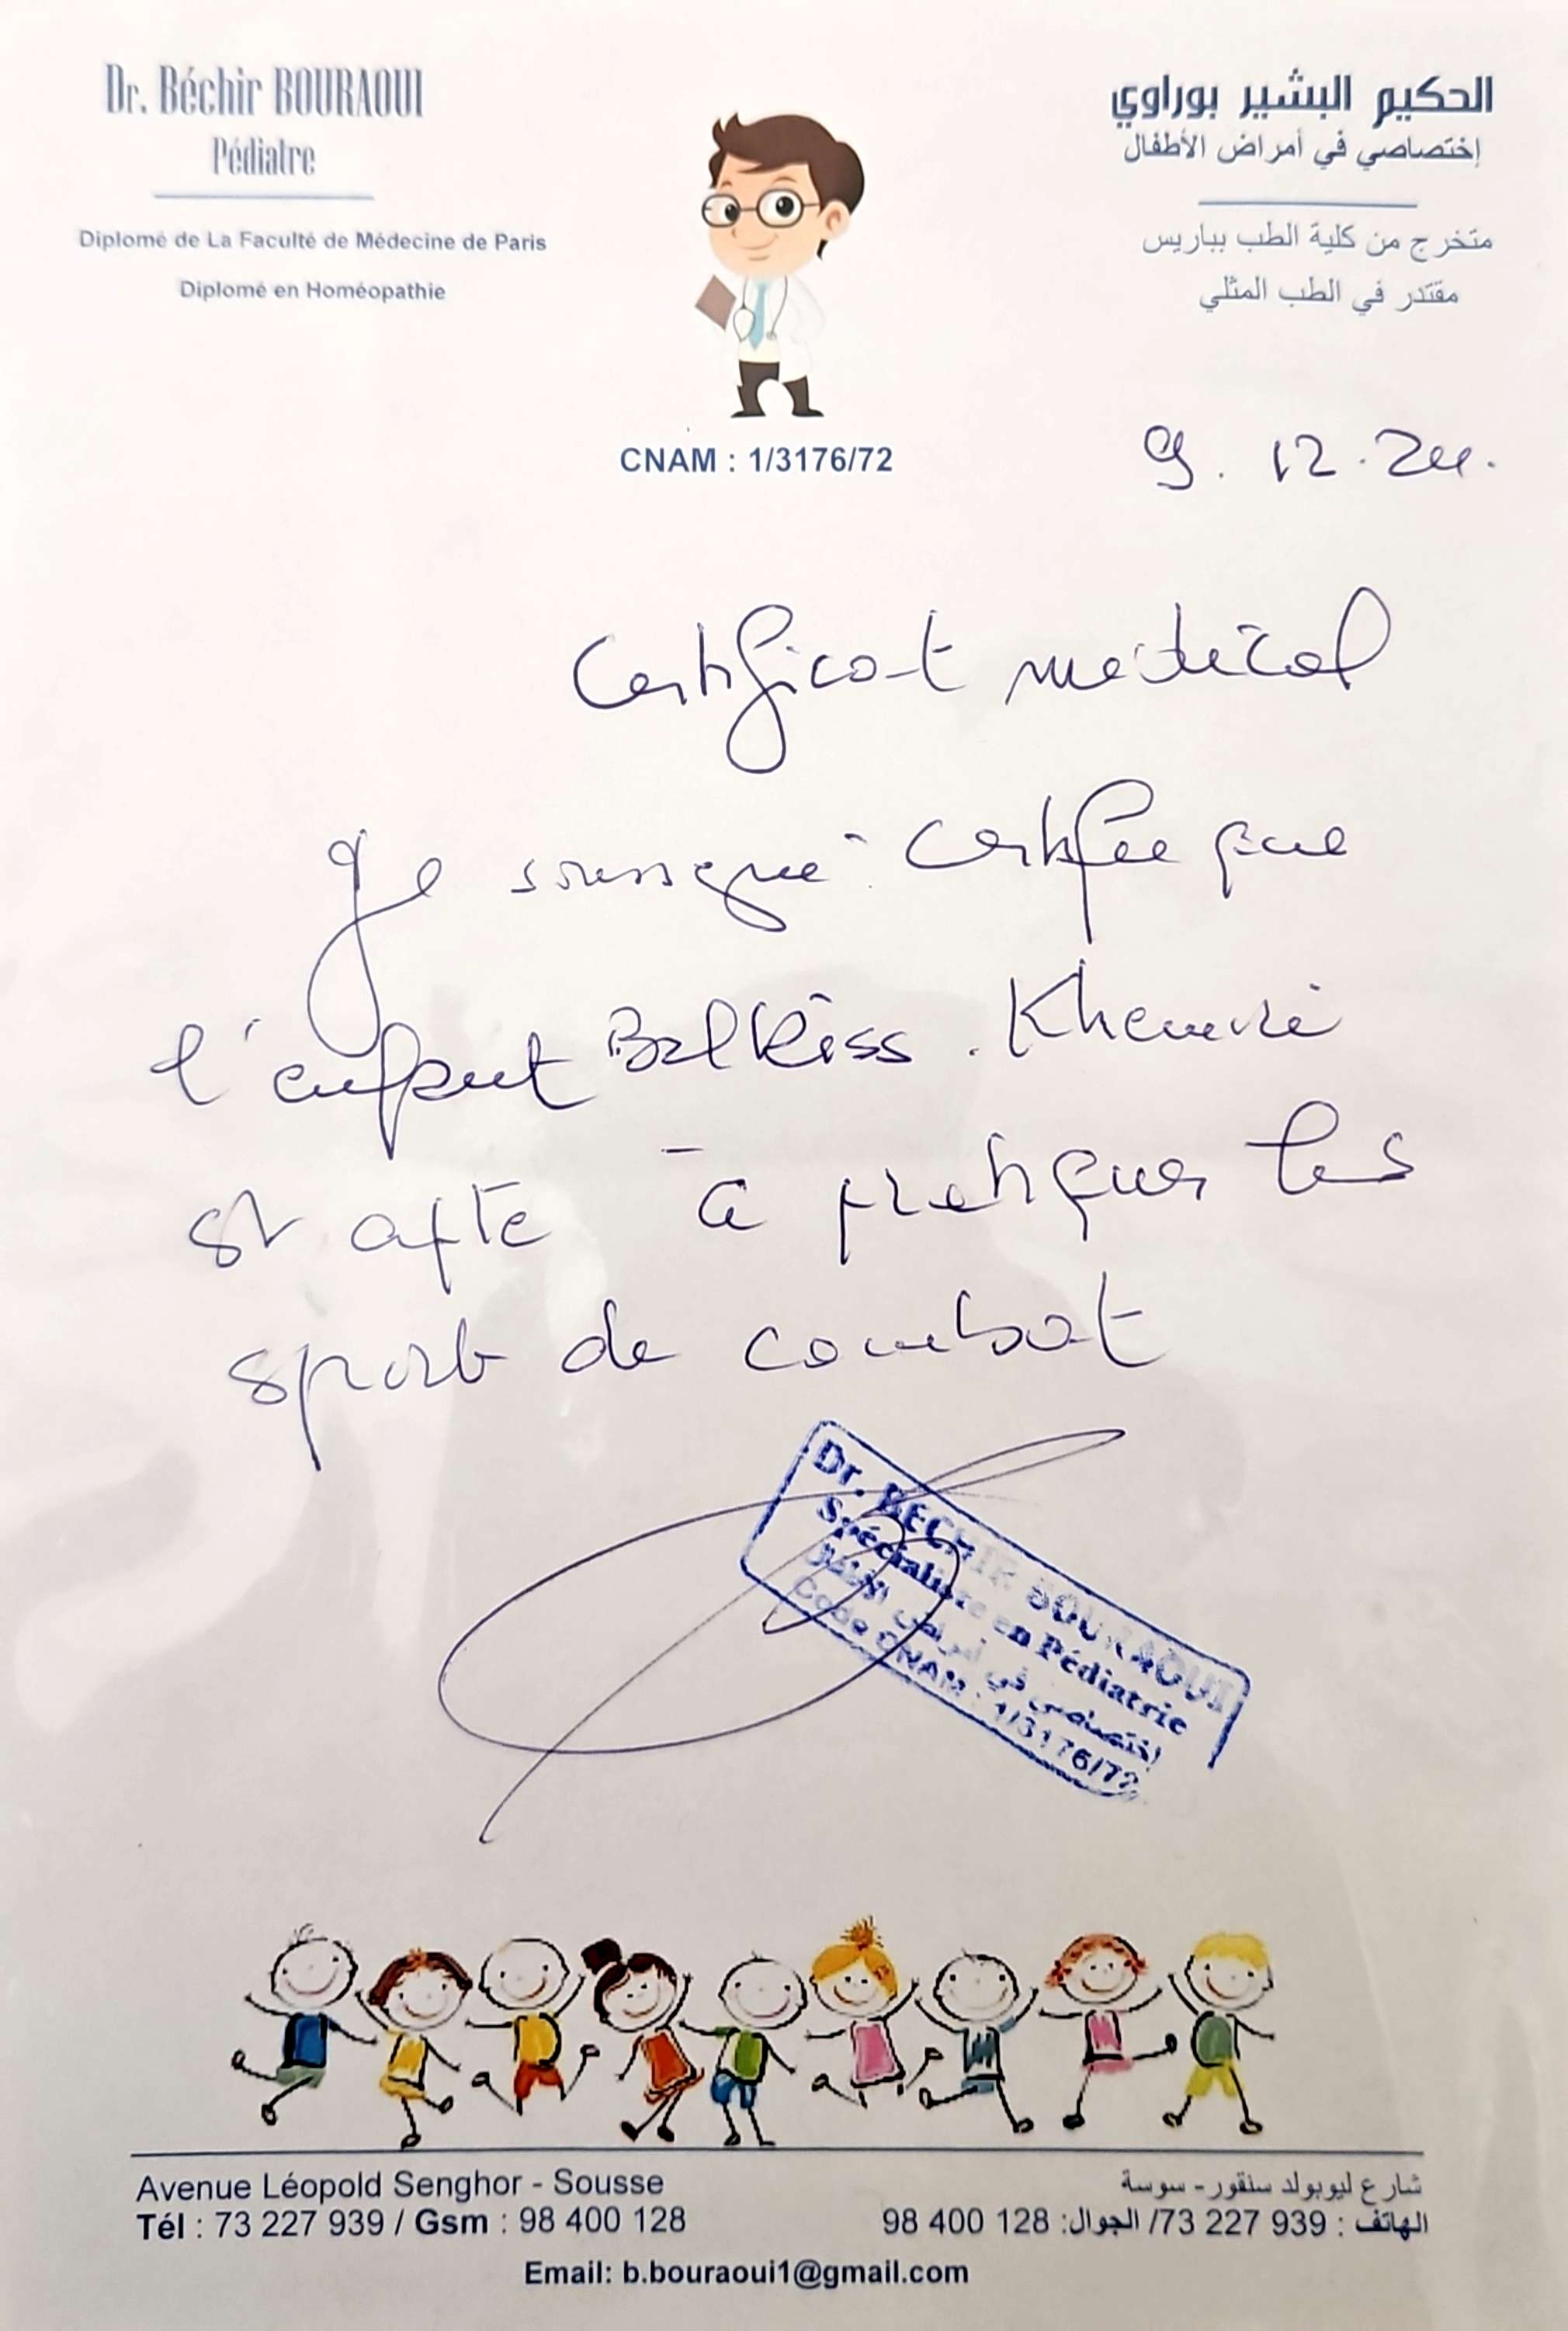 Dr. Béchir BOURAOUI
Pédiatre
Diplomé de La Faculté de Médecine de Paris
Diplomé en Homéopathie
الحكيم البشير بوراوي
إختصاصي في أمراض الأطفال
متخرج من كلية الطب بباريس
مقتدر في الطب المثلي
CNAM : 1/3176/72
9. 12. 24.
Certificat médical
Je soussigné certifie que
l'enfant Balkiss Khemiri
est apte à pratiquer les
sports de combat
Dr. BECHIR BOURAOUI
Spécialiste en Pédiatrie
إختصاصي في أمراض الأطفال
Code CNAM : 1/3176/72
Avenue Léopold Senghor - Sousse
Tél : 73 227 939 / Gsm : 98 400 128
شارع ليوبولد سنقور- سوسة
الهاتف : 939 227 73/ الجوال: 128 400 98
Email: b.bouraoui1@gmail.com